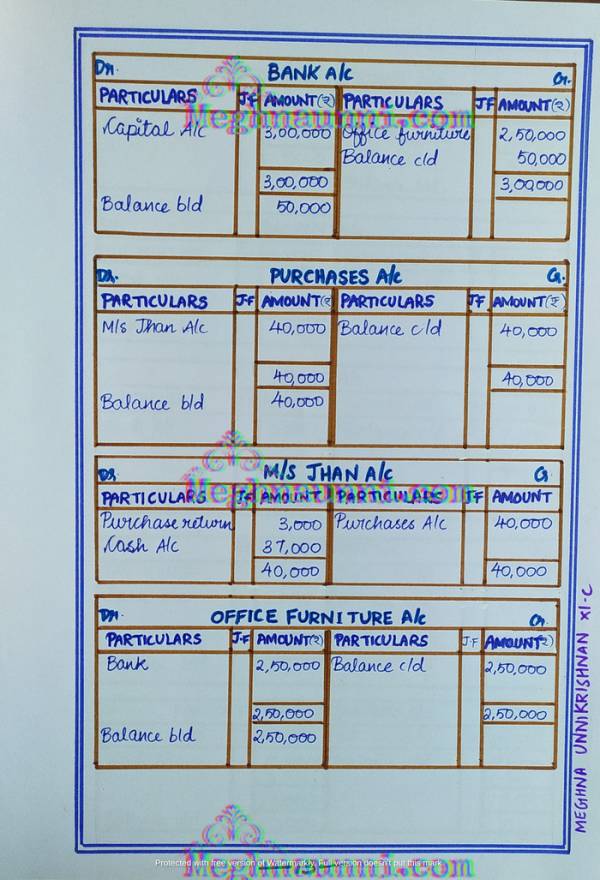 Dr. BANK A/c Cr.
PARTICULARS J.F AMOUNT(₹) PARTICULARS J.F AMOUNT(₹)
Capital A/c 3,00,000 Office furniture 2,50,000
Balance c/d 50,000
3,00,000 3,00,000
Balance b/d 50,000
Dr. PURCHASES A/c Cr.
PARTICULARS J.F AMOUNT(₹) PARTICULARS J.F AMOUNT(₹)
M/s Jhan A/c 40,000 Balance c/d 40,000
40,000 40,000
Balance b/d 40,000
Dr. M/S JHAN A/c Cr
PARTICULARS J.F AMOUNT PARTICULARS J.F AMOUNT
Purchase return 3,000 Purchases A/c 40,000
Cash A/c 37,000
40,000 40,000
Dr. OFFICE FURNITURE A/c Cr.
PARTICULARS J.F AMOUNT(₹) PARTICULARS J.F AMOUNT(₹)
Bank 2,50,000 Balance c/d 2,50,000
2,50,000 2,50,000
Balance b/d 2,50,000
MEGHNA UNNIKRISHNAN XI-C
Meghnaunni.com
Meghnaunni.com
Meghnaunni.com
Protected with free version of Watermarkly. Full version doesn't put this mark.